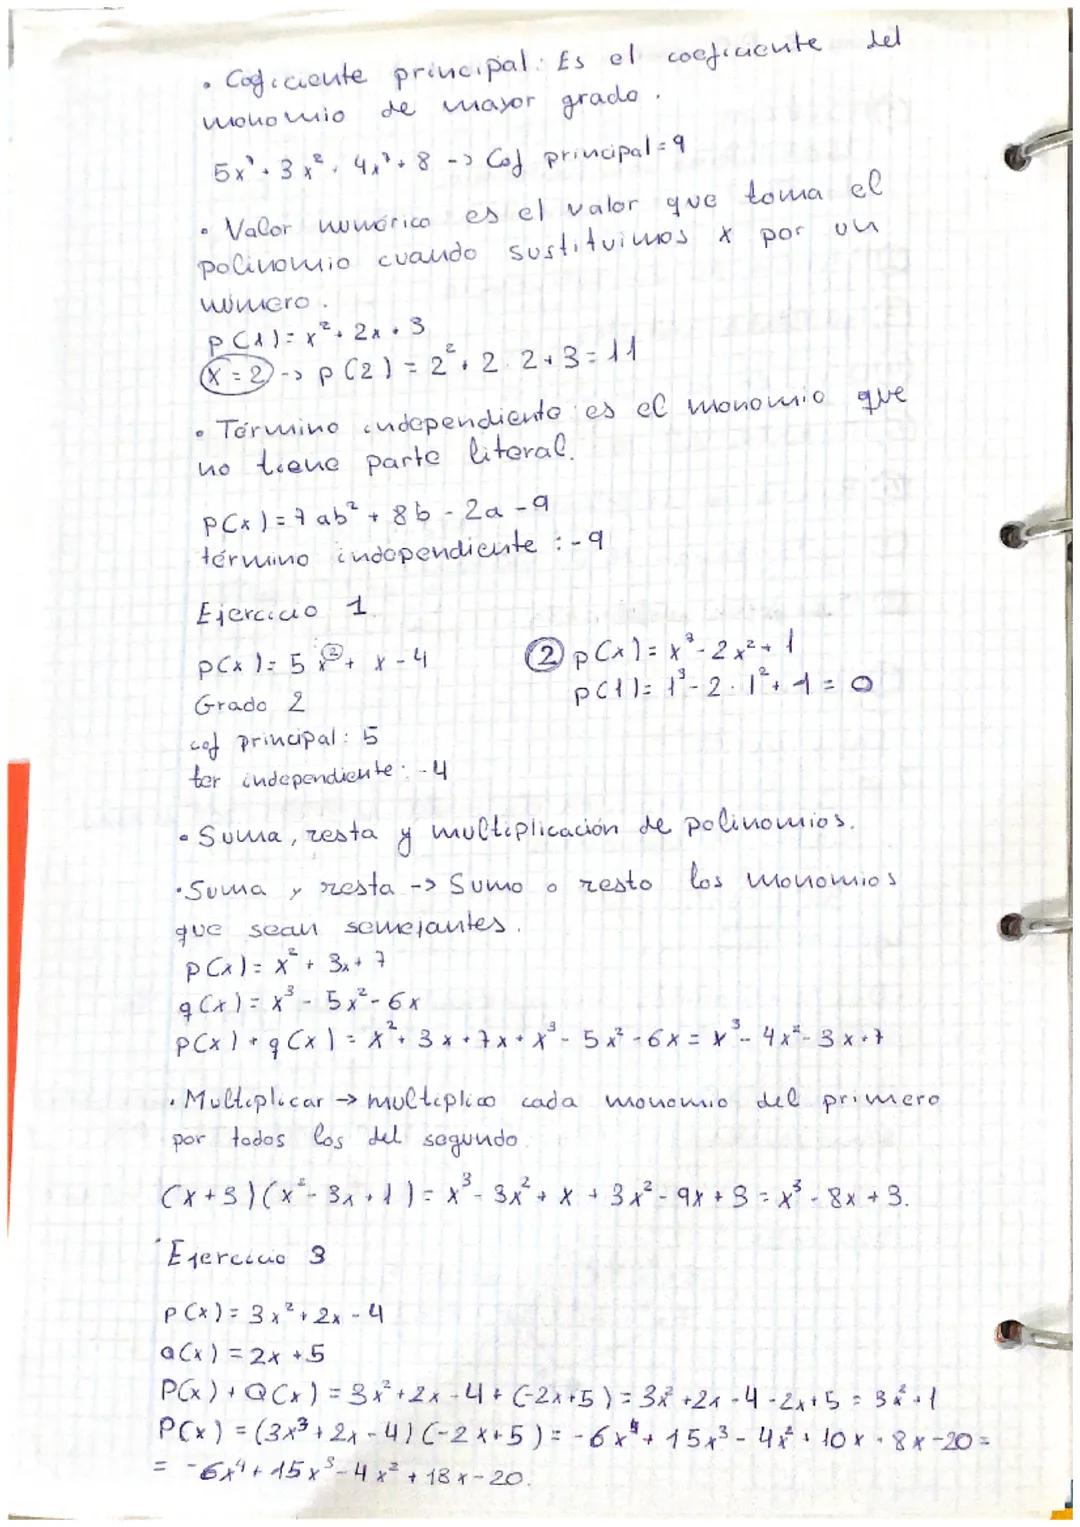 • Coeficiente principal: Es el coeficiente del
monomio de mayor grado.
5x³ + 3x² + 4x³ + 8 -> Coef principal = 9
• Valor numérico es el valor que toma el
polinomio cuando sustituimos x por un
número.
P(x) = x² + 2x + 3
x = 2 -> P(2) = 2² + 2 · 2 + 3 = 11
• Término independiente: es el monomio que
no tiene parte literal.
P(x) = 7ab² + 8b - 2a - 9
término independiente : -9
Ejercicio 1.
P(x) = 5x² + x - 4
Grado 2
coef principal: 5
ter independiente: -4
② P(x) = x³ - 2x² + 1
P(1) = 1³ - 2 · 1² + 1 = 0
• Suma, resta y multiplicación de polinomios.
• Suma y resta -> Sumo o resto los monomios
que sean semejantes.
P(x) = x² + 3x + 7
q(x) = x³ - 5x² - 6x
P(x) + q(x) = x² + 3x + 7x + x³ - 5x² - 6x = x³ - 4x² - 3x + 7
• Multiplicar → multiplico cada monomio del primero
por todos los del segundo.
(x + 3)(x² - 3x + 1) = x³ - 3x² + x + 3x² - 9x + 3 = x³ - 8x + 3.
Ejercicio 3
P(x) = 3x² + 2x - 4
Q(x) = 2x + 5
P(x) + Q(x) = 3x² + 2x - 4 + (-2x + 5) = 3x² + 2x - 4 - 2x + 5 = 3x² + 1
P(x) = (3x³ + 2x - 4)(-2x + 5) = -6x⁴ + 15x³ - 4x² + 10x + 8x - 20 =
= -6x⁴ + 15x³ - 4x² + 18x - 20.